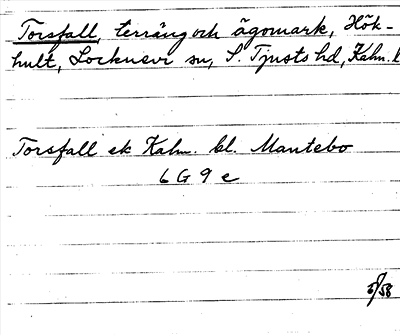 Torsfall, terräng och ägomark, Hök-
hult, Locknevi sn, S. Tjusts hd, Kalm. l
Torsfall ek Kalm. bl. Mantebo
6 G 9 e
/58